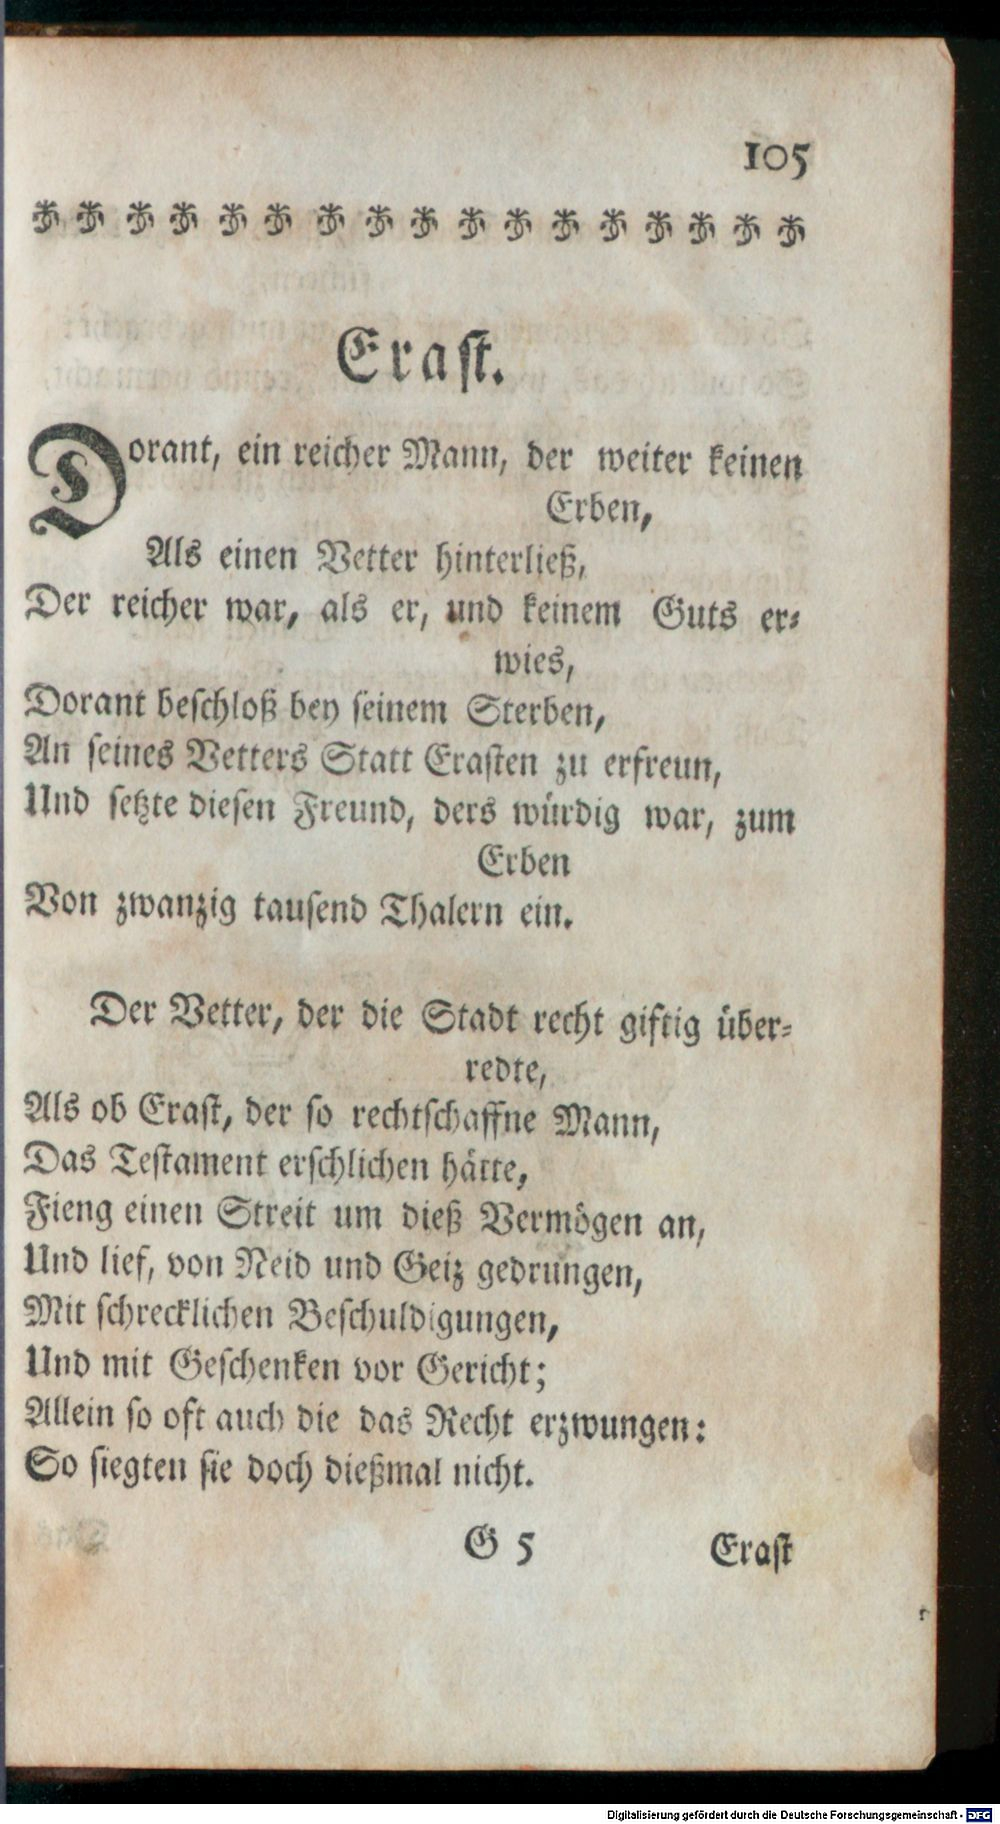 105
Erast.
Dorant, ein reicher Mann, der weiter keinen
Erben,
Als einen Vetter hinterließ,
Der reicher war, als er, und keinem Guts er-
wies,
Dorant beschloß bey seinem Sterben,
An seines Vetters Statt Erasten zu erfreun,
Und setzte diesen Freund, ders würdig war, zum
Erben
Von zwanzig tausend Thalern ein.
Der Vetter, der die Stadt recht giftig über-
redte,
Als ob Erast, der so rechtschaffne Mann,
Das Testament erschlichen hätte,
Fieng einen Streit um dieß Vermögen an,
Und lief, von Neid und Geiz gedrungen,
Mit schrecklichen Beschuldigungen,
Und mit Geschenken vor Gericht;
Allein so oft auch die das Recht erzwungen:
So siegten sie doch dießmal nicht.
G 5 Erast
Digitalisierung gefördert durch die Deutsche Forschungsgemeinschaft - DFG